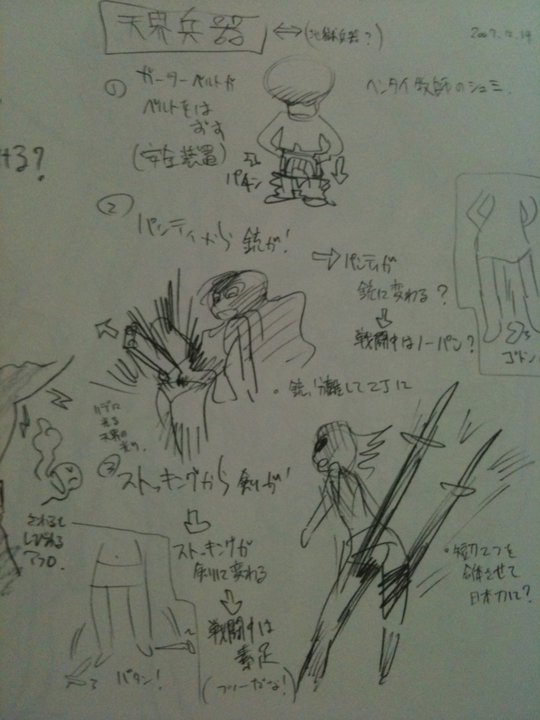 天界兵器
⇔(地獄兵器?)
2007.
ヘンタイ教師のシュミ.
① ガーターベルトが
ベルトをは
ずす
(安全装置)
パチン
ける?
② パンティから銃が!
⇨ パンティが
銃に変わる?
⇩
戦闘中はノーパン?
ゴトン
。銃、分離して2丁に
③ ストッキングから剣が!
⇩
ストッキングが
剣に変わる
⇩
戦闘中は
素足
さわると
しびれる
アフロ.
バタン!
・短刀2つを
合体させて
日本刀に?